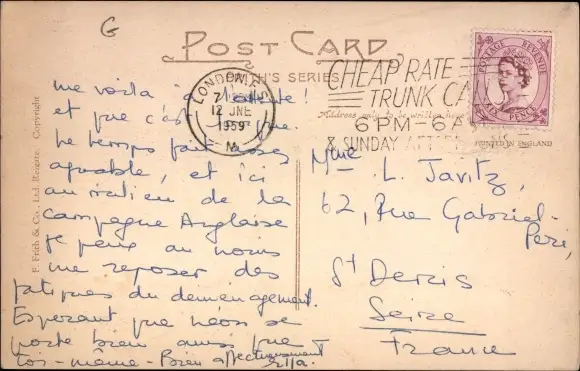 G
POST CARD
FRITH'S SERIES
F. Frith & Co., Ltd. Reigate. Copyright
LONDON
12 JNE
1959
CHEAP RATE
TRUNK CA
6 PM - 6 A
& SUNDAY AFTER
POSTAGE REVENUE
SIX PENCE
Address only to be written here
PRINTED IN ENGLAND
me voilà
et que c'est
le temps fait assez
agréable, et ici
au milieu de la
campagne Anglaise
je peux au moins
me reposer des
fatigues du déménagement.
Espérant que Léon se
porte bien ainsi que
toi-même - Bien affectueusement
Etta.
Mme L. Javitz,
62, Rue Gabriel-
Peri,
St Denis
Seine
France